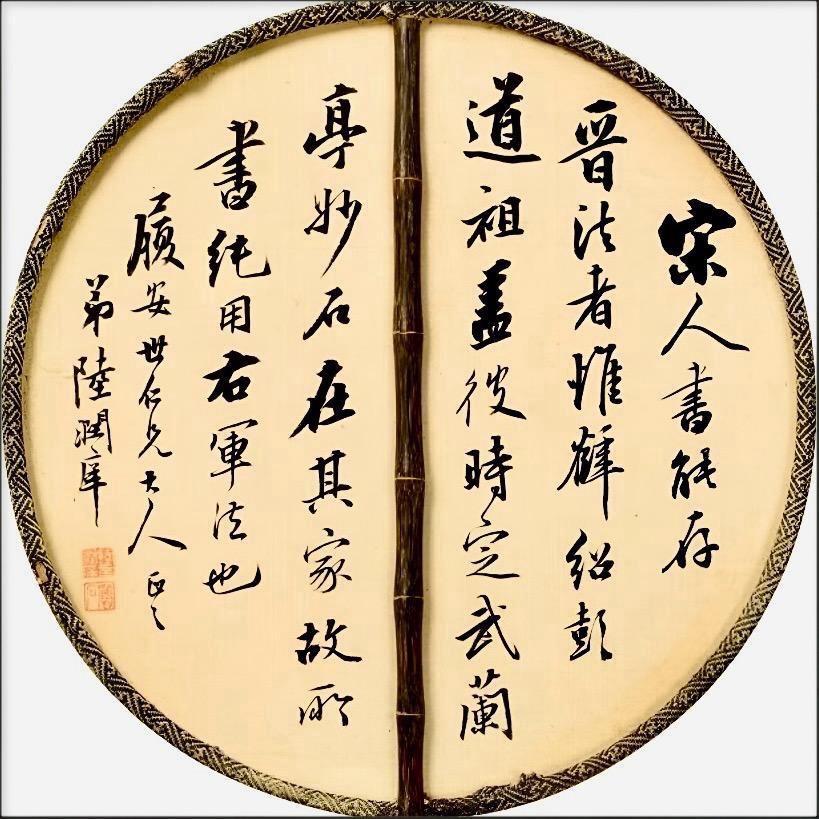 宋人書能存
晋法者惟薛紹彭
道祖盖彼時定武蘭
亭妙石在其家故所
書純用右軍法也
履安世仁兄大人正之
弟陸潤庠